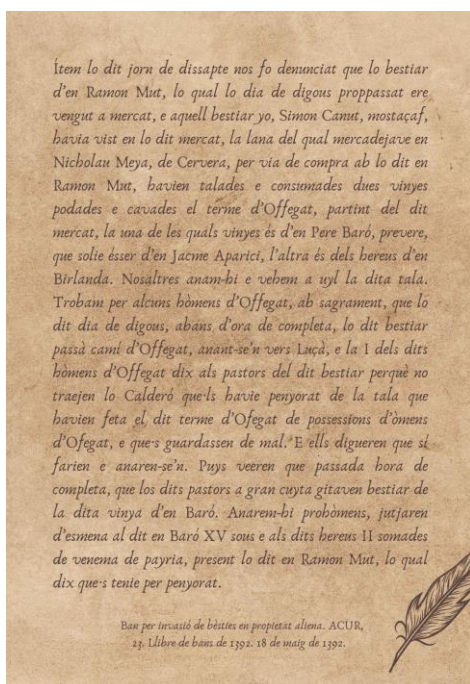 Ítem lo dit jorn de dissapte nos fo denunciat que lo bestiar
d'en Ramon Mut, lo qual lo dia de digous proppassat ere
vengut a mercat, e aquell bestiar yo, Simon Canut, mostaçaf,
havia vist en lo dit mercat, la lana del qual mercadejave en
Nicholau Meya, de Cervera, per via de compra ab lo dit en
Ramon Mut, havien talades e consumades dues vinyes
podades e cavades el terme d'Offegat, partint del dit
mercat, la una de les quals vinyes és d'en Pere Baró, prevere,
que solie ésser d'en Jacme Aparici, l'altra és dels hereus d'en
Birlanda. Nosaltres anam-hi e vehem a uyl la dita tala.
Trobam per alcuns hòmens d'Offegat, ab sagrament, que lo
dit dia de digous, abans d'ora de completa, lo dit bestiar
passà camí d'Offegat, anant-se'n vers Luçà, e la I dels dits
hòmens d'Offegat dix als pastors del dit bestiar perquè no
traejen lo Calderó que·ls havie penyorat de la tala que
havien feta el dit terme d'Ofegat de possessions d'òmens
d'Ofegat, e que·s guardassen de mal. E ells digueren que sí
farien e anaren-se'n. Puys veeren que passada hora de
completa, que los dits pastors a gran cuyta gitaven bestiar de
la dita vinya d'en Baró. Anarem-hi prohòmens, jutjaren
d'esmena al dit en Baró XV sous e als dits hereus II somades
de venema de payria, present lo dit en Ramon Mut, lo qual
dix que·s tenie per penyorat.
Ban per invasió de bèsties en propietat aliena. ACUR,
23. Llibre de bans de 1392. 18 de maig de 1392.